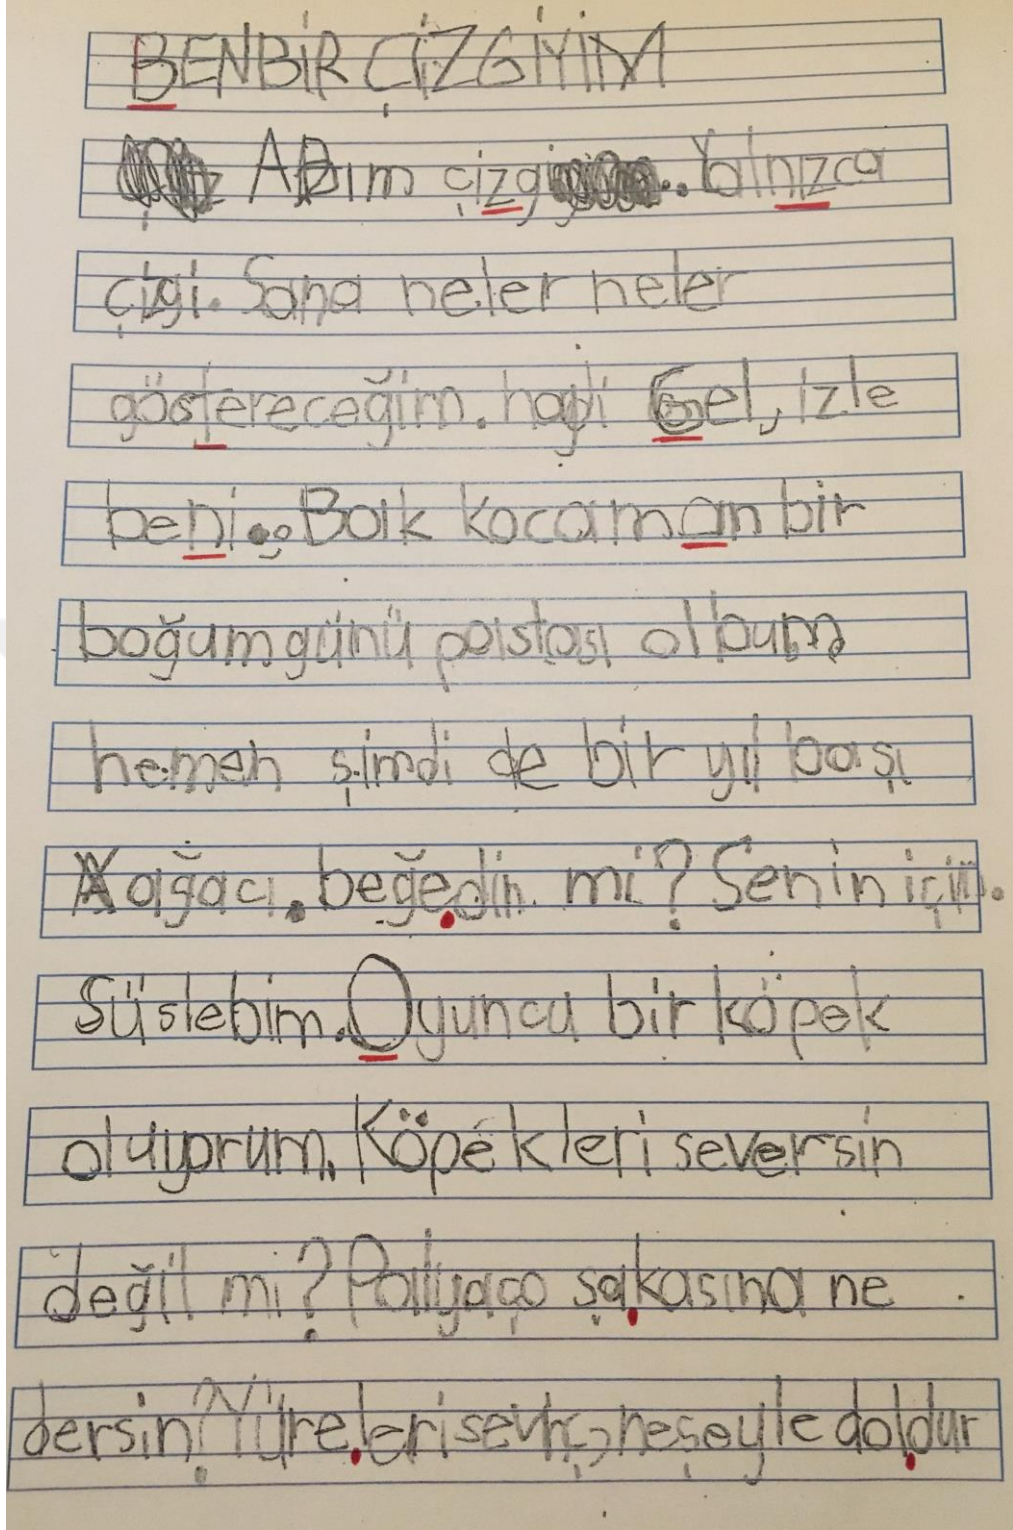 BENBİR ÇİZGİYİM
ABım çizgi.. Yalnızca
çigi. Sana neler neler
göstereceğim. haydi Gel, izle
beni.. Baık kocamam bir
boğumgünü paıstası olbum
hemen şimdi de bir yıl başı
ağacı. beğedin mi? Senin için.
Süslebim. Oyuncu bir köpek
oluyorum. Köpekleri seversin
değil mi? Paliyaço şakasına ne
dersin? Yüreleri sevinç, neşeyle doldur